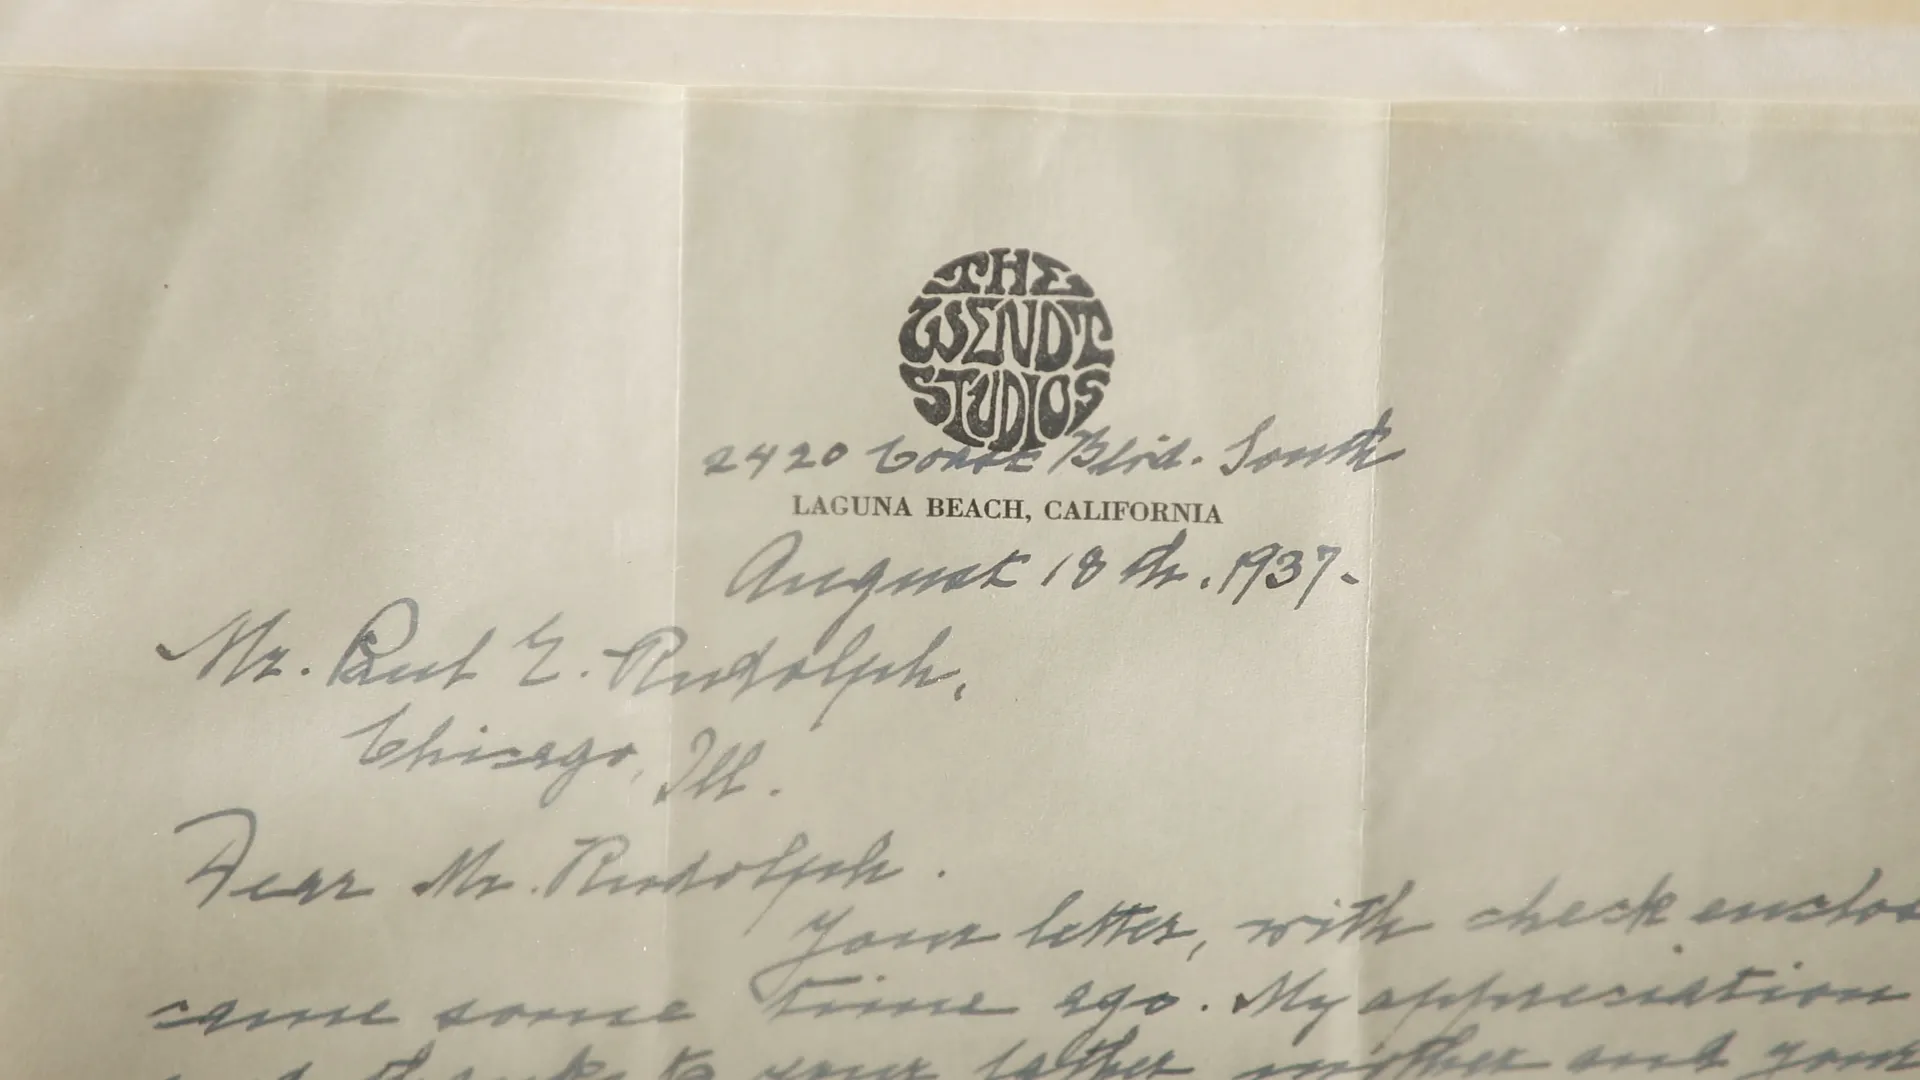 THE
WENDT
STUDIOS
2420 Coast Blvd. South
LAGUNA BEACH, CALIFORNIA
August 18th. 1937.
Mr. Paul E. Rudolph,
Chicago, Ill.
Dear Mr. Rudolph.
Your letter, with check enclos
came some time ago. My appreciation
and thanks to your father mother and your